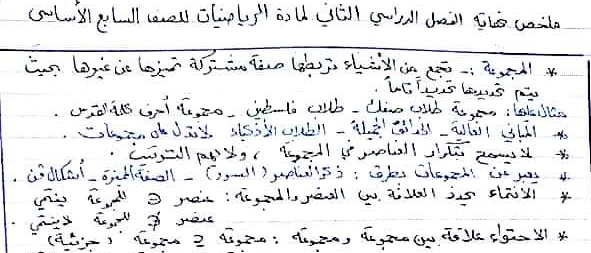 ملخص نهاية الفصل الدراسي الثاني لمادة الرياضيات للصف السابع الأساسي
* المجموعة :- تجمع من الأشياء تربطها صفة مشتركة تميزها عن غيرها بحيث
يتم تحديدها تحديداً تاماً .
مثال عليها : مجموعة طلاب صفك - طلاب فلسطين - مجموعة أحرف كلمة القدس .
* المباني العالية - الحدائق الجميلة - الطلاب الأذكياء لا تدل على مجموعات .
* لا يسمح بتكرار العناصر في المجموعة ، ولا يهم الترتيب .
* يعبر عن المجموعات بطرق : ذكر العناصر (السرد) - الصفة المميزة - أشكال فن .
* الانتماء يحدد العلاقة بين العنصر والمجموعة : عنصر ∈ للمجموعة ينتمي
عنصر ∉ للمجموعة لا ينتمي .
* الاحتواء علاقة بين مجموعة ومجموعة : مجموعة ⊆ مجموعة (جزئية)